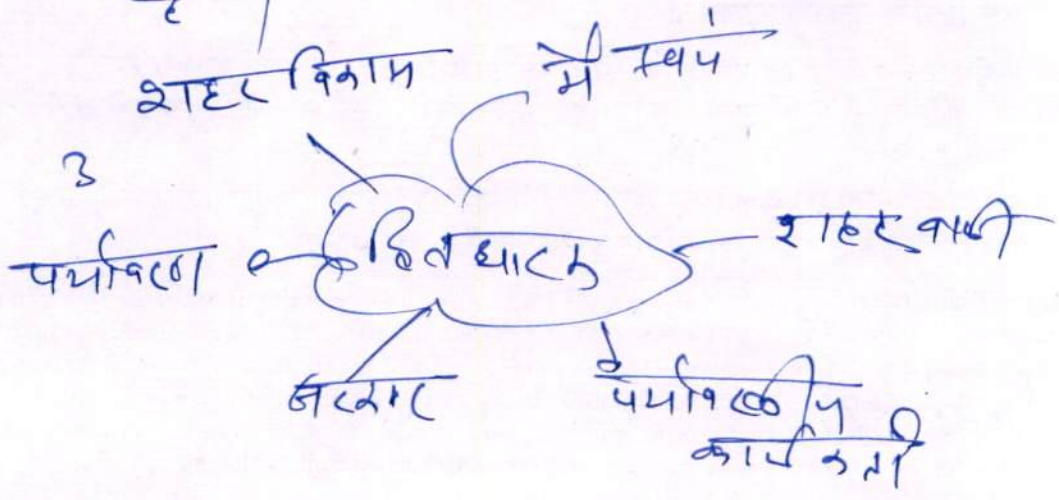 है
शहर विकास
मैं स्वयं
3
पर्यावरण
हितधारक
शहर वासी
सरकार
पर्यावरणीय
कार्यकर्ता